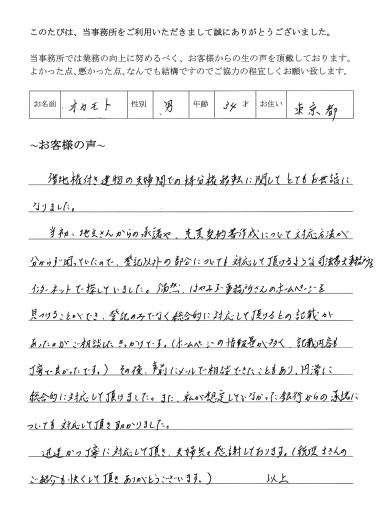 このたびは、当事務所をご利用いただきまして誠にありがとうございました。
当事務所では業務の向上に努めるべく、お客様からの生の声を頂戴しております。
よかった点、悪かった点、なんでも結構ですのでご協力の程宜しくお願い致します。
お名前 オカモト 性別 男 年齢 34 才 お住い 東京都
~お客様の声~
借地権付き建物の夫婦間での持分権移転に関してとてもお世話に
なりました。
当初、地主さんからの承諾や、売買契約書作成について対応方法が
分からず困っていたので、登記以外の部分についても対応して頂けるような司法書士事務所を
インターネットで探していました。偶然、はやみず事務所さんのホームページを
見つけることができ、登記のみでなく総合的に対応して頂けるとの記載が
あったのがご相談したきっかけです。(ホームページの情報量が多く、記載内容も
丁寧で良かったです。)その後、事前にメールで相談できたこともあり、円滑に
総合的に対応して頂けました。また、私が想定していなかった銀行からの承諾に
ついても対応して頂き助かりました。
迅速かつ丁寧に対応して頂き、夫婦共々感謝しております。(税理士さんの
ご紹介も快くして頂きありがとうございます。) 以上